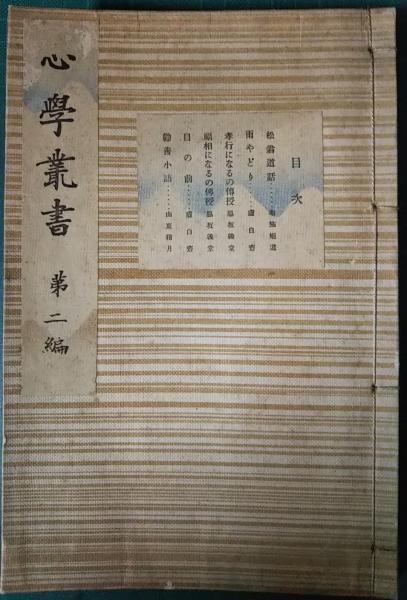 心學叢書 第二編
目次
松翁道話……布施松翁
雨やどり……盧白齋
孝行になるの傳授 脇坂義堂
顏相になるの傳授 脇坂義堂
目の前……盧白齋
勸善小話……山東籬月